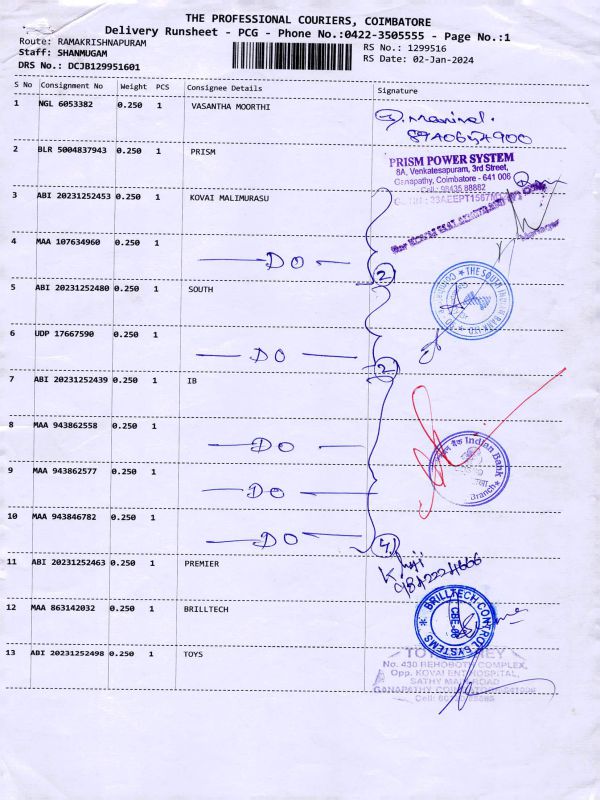 THE PROFESSIONAL COURIERS, COIMBATORE
Delivery Runsheet - PCG - Phone No.:0422-3505555 - Page No.:1
Route: RAMAKRISHNAPURAM
RS No.: 1299516
Staff: SHANMUGAM
RS Date: 02-Jan-2024
DRS No.: DCJB129951601
S No Consignment No Weight PCS Consignee Details Signature
1 NGL 6053382 0.250 1 VASANTHA MOORTHI
2 BLR 5004837943 0.250 1 PRISM
PRISM POWER SYSTEM
8A, Venkatesapuram, 3rd Street,
Ganapathy, Coimbatore - 641 006
Cell : 98435 88882
3 ABI 20231252453 0.250 1 KOVAI MALIMURASU
4 MAA 107634960 0.250 1
DO
2
5 ABI 20231252480 0.250 1 SOUTH
THE SOUTH INDIAN BANK LTD
6 UDP 17667590 0.250 1
DO
2
7 ABI 20231252439 0.250 1 IB
8 MAA 943862558 0.250 1
DO
Indian Bank
Branch
9 MAA 943862577 0.250 1
DO
10 MAA 943846782 0.250 1
DO
4
11 ABI 20231252463 0.250 1 PREMIER
12 MAA 863142032 0.250 1 BRILLTECH
BRILLTECH CONTROL SYSTEMS
13 ABI 20231252498 0.250 1 TOYS
No. 430 REHOBOTH COMPLEX,
Opp. KOVAI ENT HOSPITAL,
SATHY MAIN ROAD